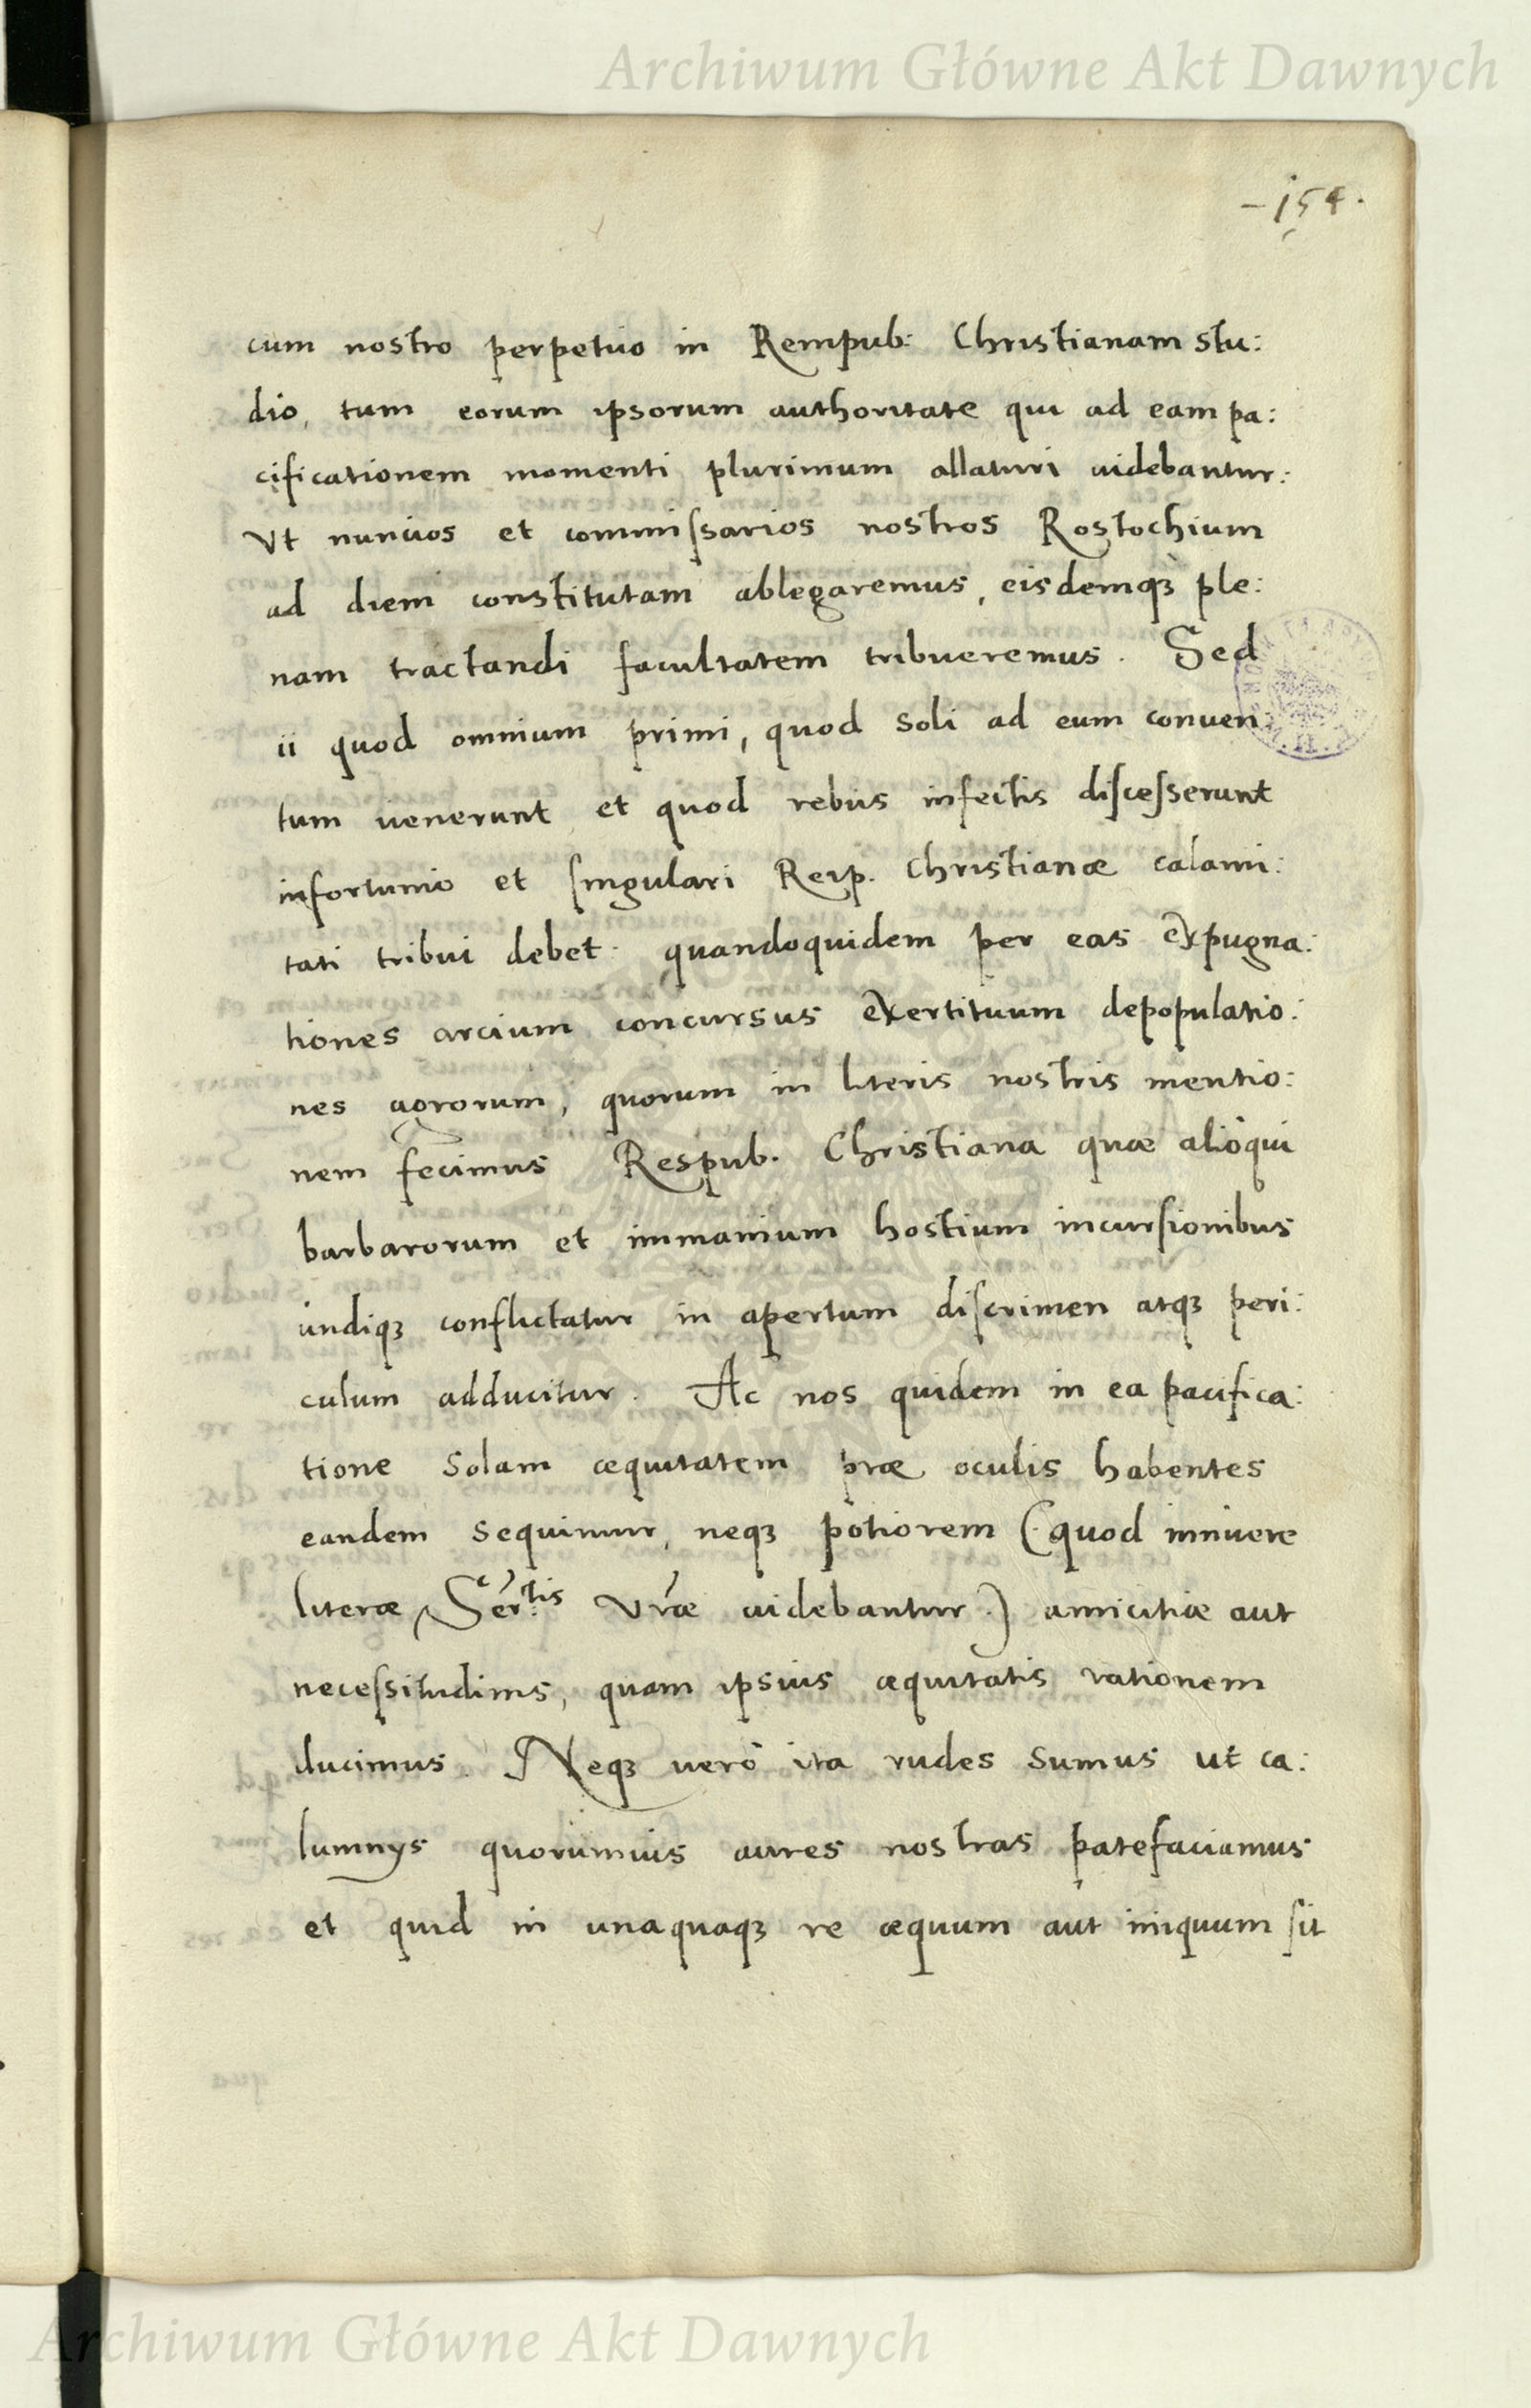 Archiwum Główne Akt Dawnych
- 154.
cum nostro perpetuo in Rempub: Christianam stu:
dio, tum eorum ipsorum authoritate qui ad eam pa:
cificationem momenti plurimum allaturi uidebantur:
Vt nuncios et commiſsarios nostros Rostochium
ad diem constitutam ablegaremus, eisdemqꝫ ple:
nam tractandi facultatem tribueremus. Sed
ii quod omnium primi, quod soli ad eum conuen:
tum uenerunt et quod rebus infectis diſceſserunt
infortunio et ſingulari Reip. Christianæ calami:
tati tribui debet: quandoquidem per eas expugna:
tiones arcium concursus exertituum depopulatio:
nes agrorum, quorum in literis nostris mentio:
nem fecimus Respub. Christiana quæ alioqui
barbarorum et immanium hostium incurſionibus
undiqꝫ conflictatur in apertum diſcrimen atqꝫ peri:
culum adducitur. Ac nos quidem in ea pacifica:
tione solam æquitatem præ oculis habentes
eandem sequimur, neqꝫ potiorem (quod innuere
literæ Ser:tis Vræ uidebantur.) amicitiæ aut
neceſsitudinis, quam ipsius æquitatis rationem
ducimus. Neqꝫ uerò ita rudes sumus ut ca:
lumnys quorumuis aures nostras patefaciamus
et quid in unaquaqꝫ re æquum aut iniquum ſit
Archiwum Główne Akt Dawnych